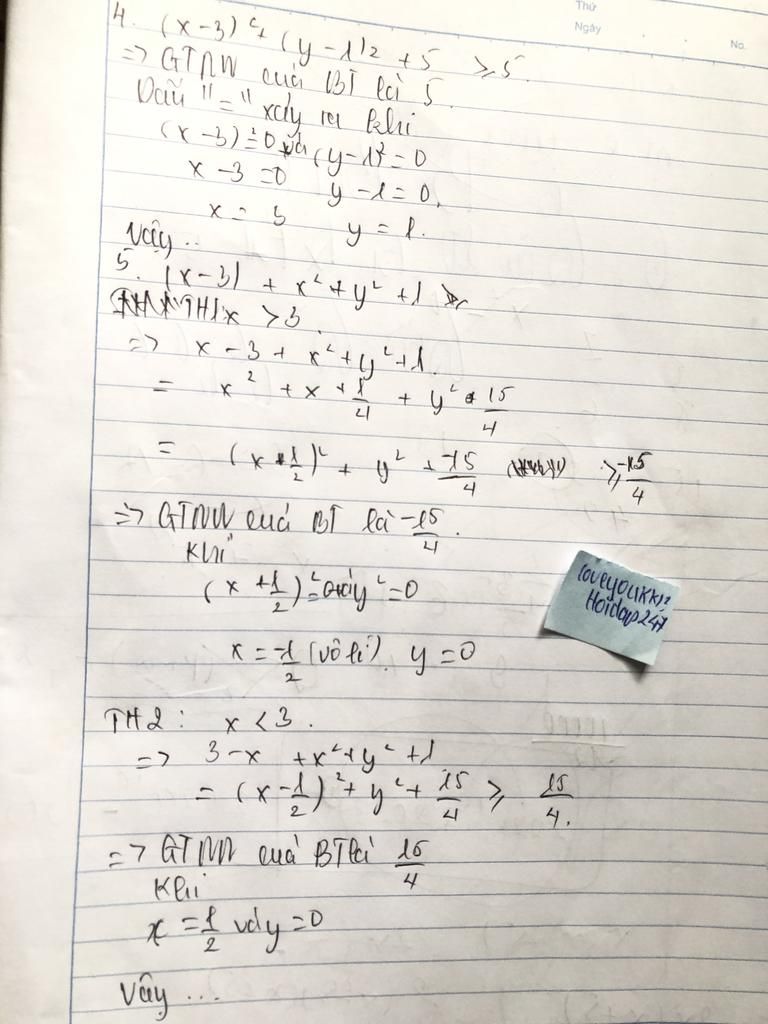 Thứ
Ngày
No.
4. (x-3)² + (y-1)² + 5 ≥ 5.
=> GTNN của BT là 5.
Dấu "=" xảy ra khi
(x-3)² = 0 và (y-1)² = 0
x-3 = 0 y-1 = 0.
x = 3 y = 1.
Vậy..
5. |x-3| + x² + y² + 1
TH1 x > 3.
=> x-3 + x² + y² + 1.
= x² + x + 1/4 + y² 15/4
= (x + 1/2)² + y² + -15/4 ≥ -15/4
=> GTNN của BT là -15/4.
Khi
(x + 1/2)² = 0 và y² = 0
x = -1/2 (vô lí) y = 0
TH2: x < 3.
=> 3-x + x² + y² + 1
= (x - 1/2)² + y² + 15/4 ≥ 15/4.
=> GTNN của BT là 15/4
Khi
x = 1/2 và y = 0
Vậy ...
loveyoukk12
Hoidap247